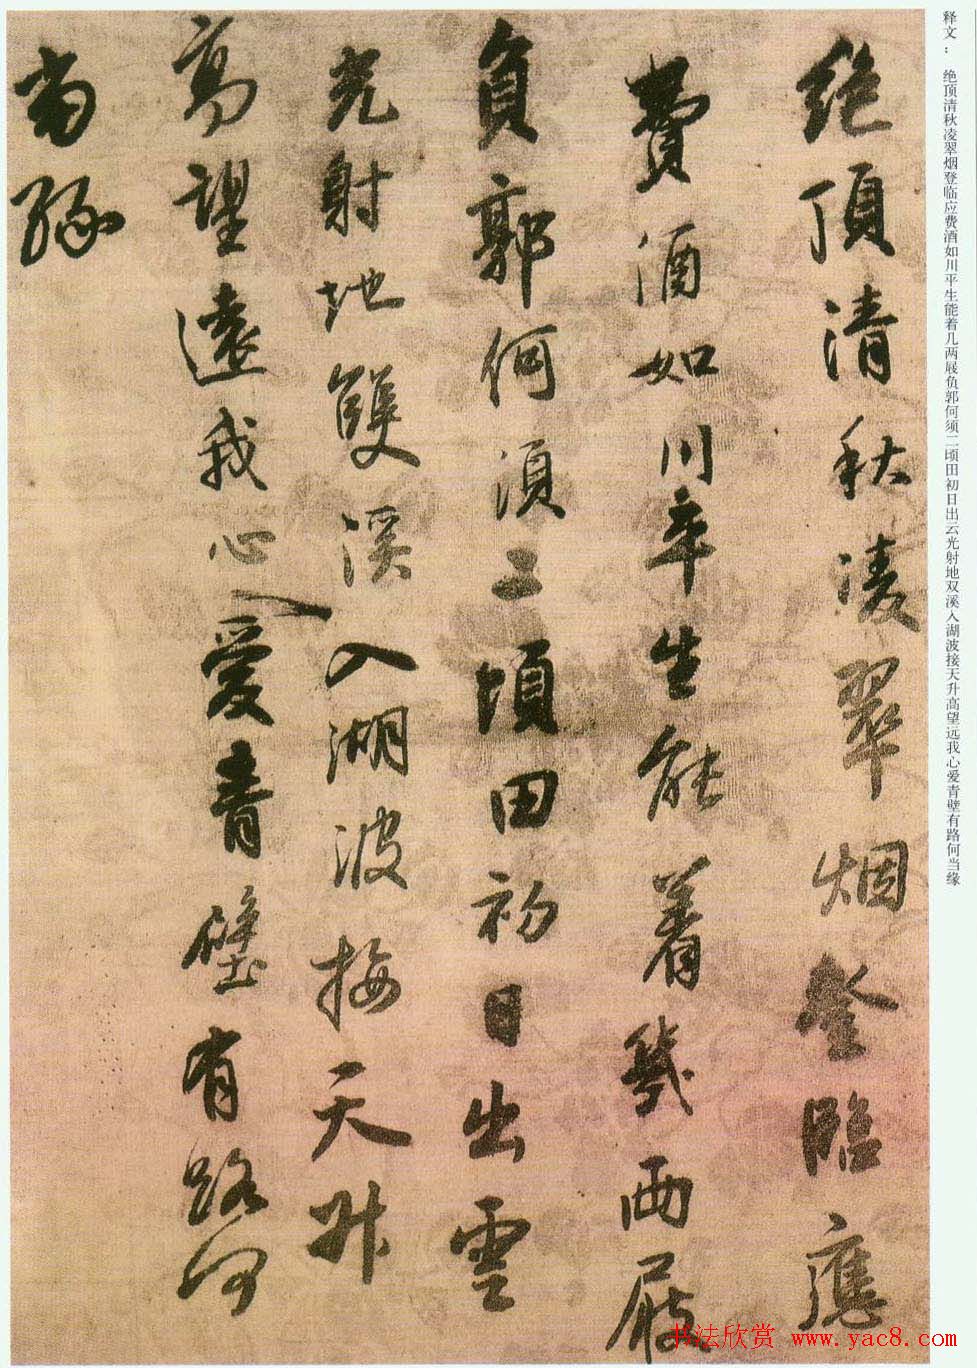 释文： 绝顶清秋凌翠烟登临应费酒如川平生能着几两屐负郭何须二顷田初日出云光射地双溪入湖波接天升高望远我心爱青壁有路何当缘
絶頂清秋凌翠烟登臨應
費酒如川平生能着幾兩屐
負郭何須二頃田初日出雲
光射地雙溪入湖波接天升
高望遠我心愛青壁有路何
當緣
书法欣赏 www.yac8.com